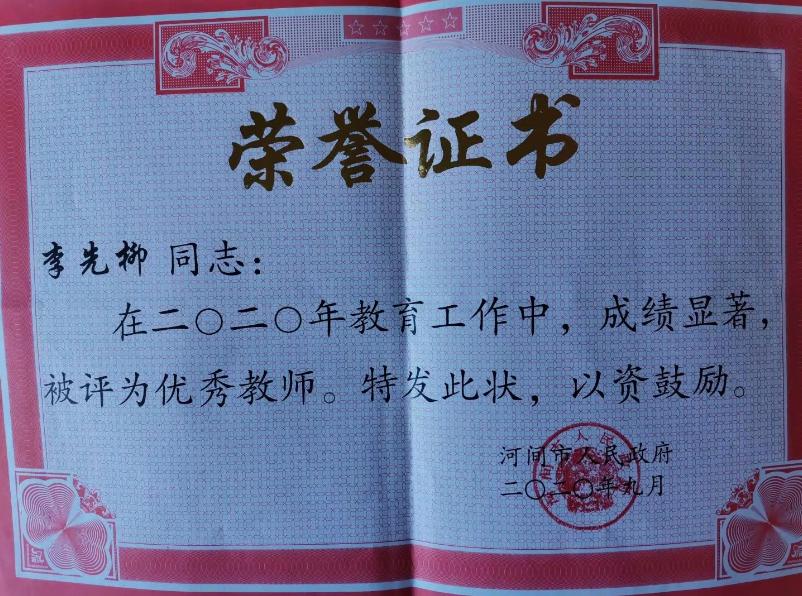 荣誉证书
李先柳 同志：
在二〇二〇年教育工作中，成绩显著，
被评为优秀教师。特发此状，以资鼓励。
河间市人民政府
二〇二〇年九月